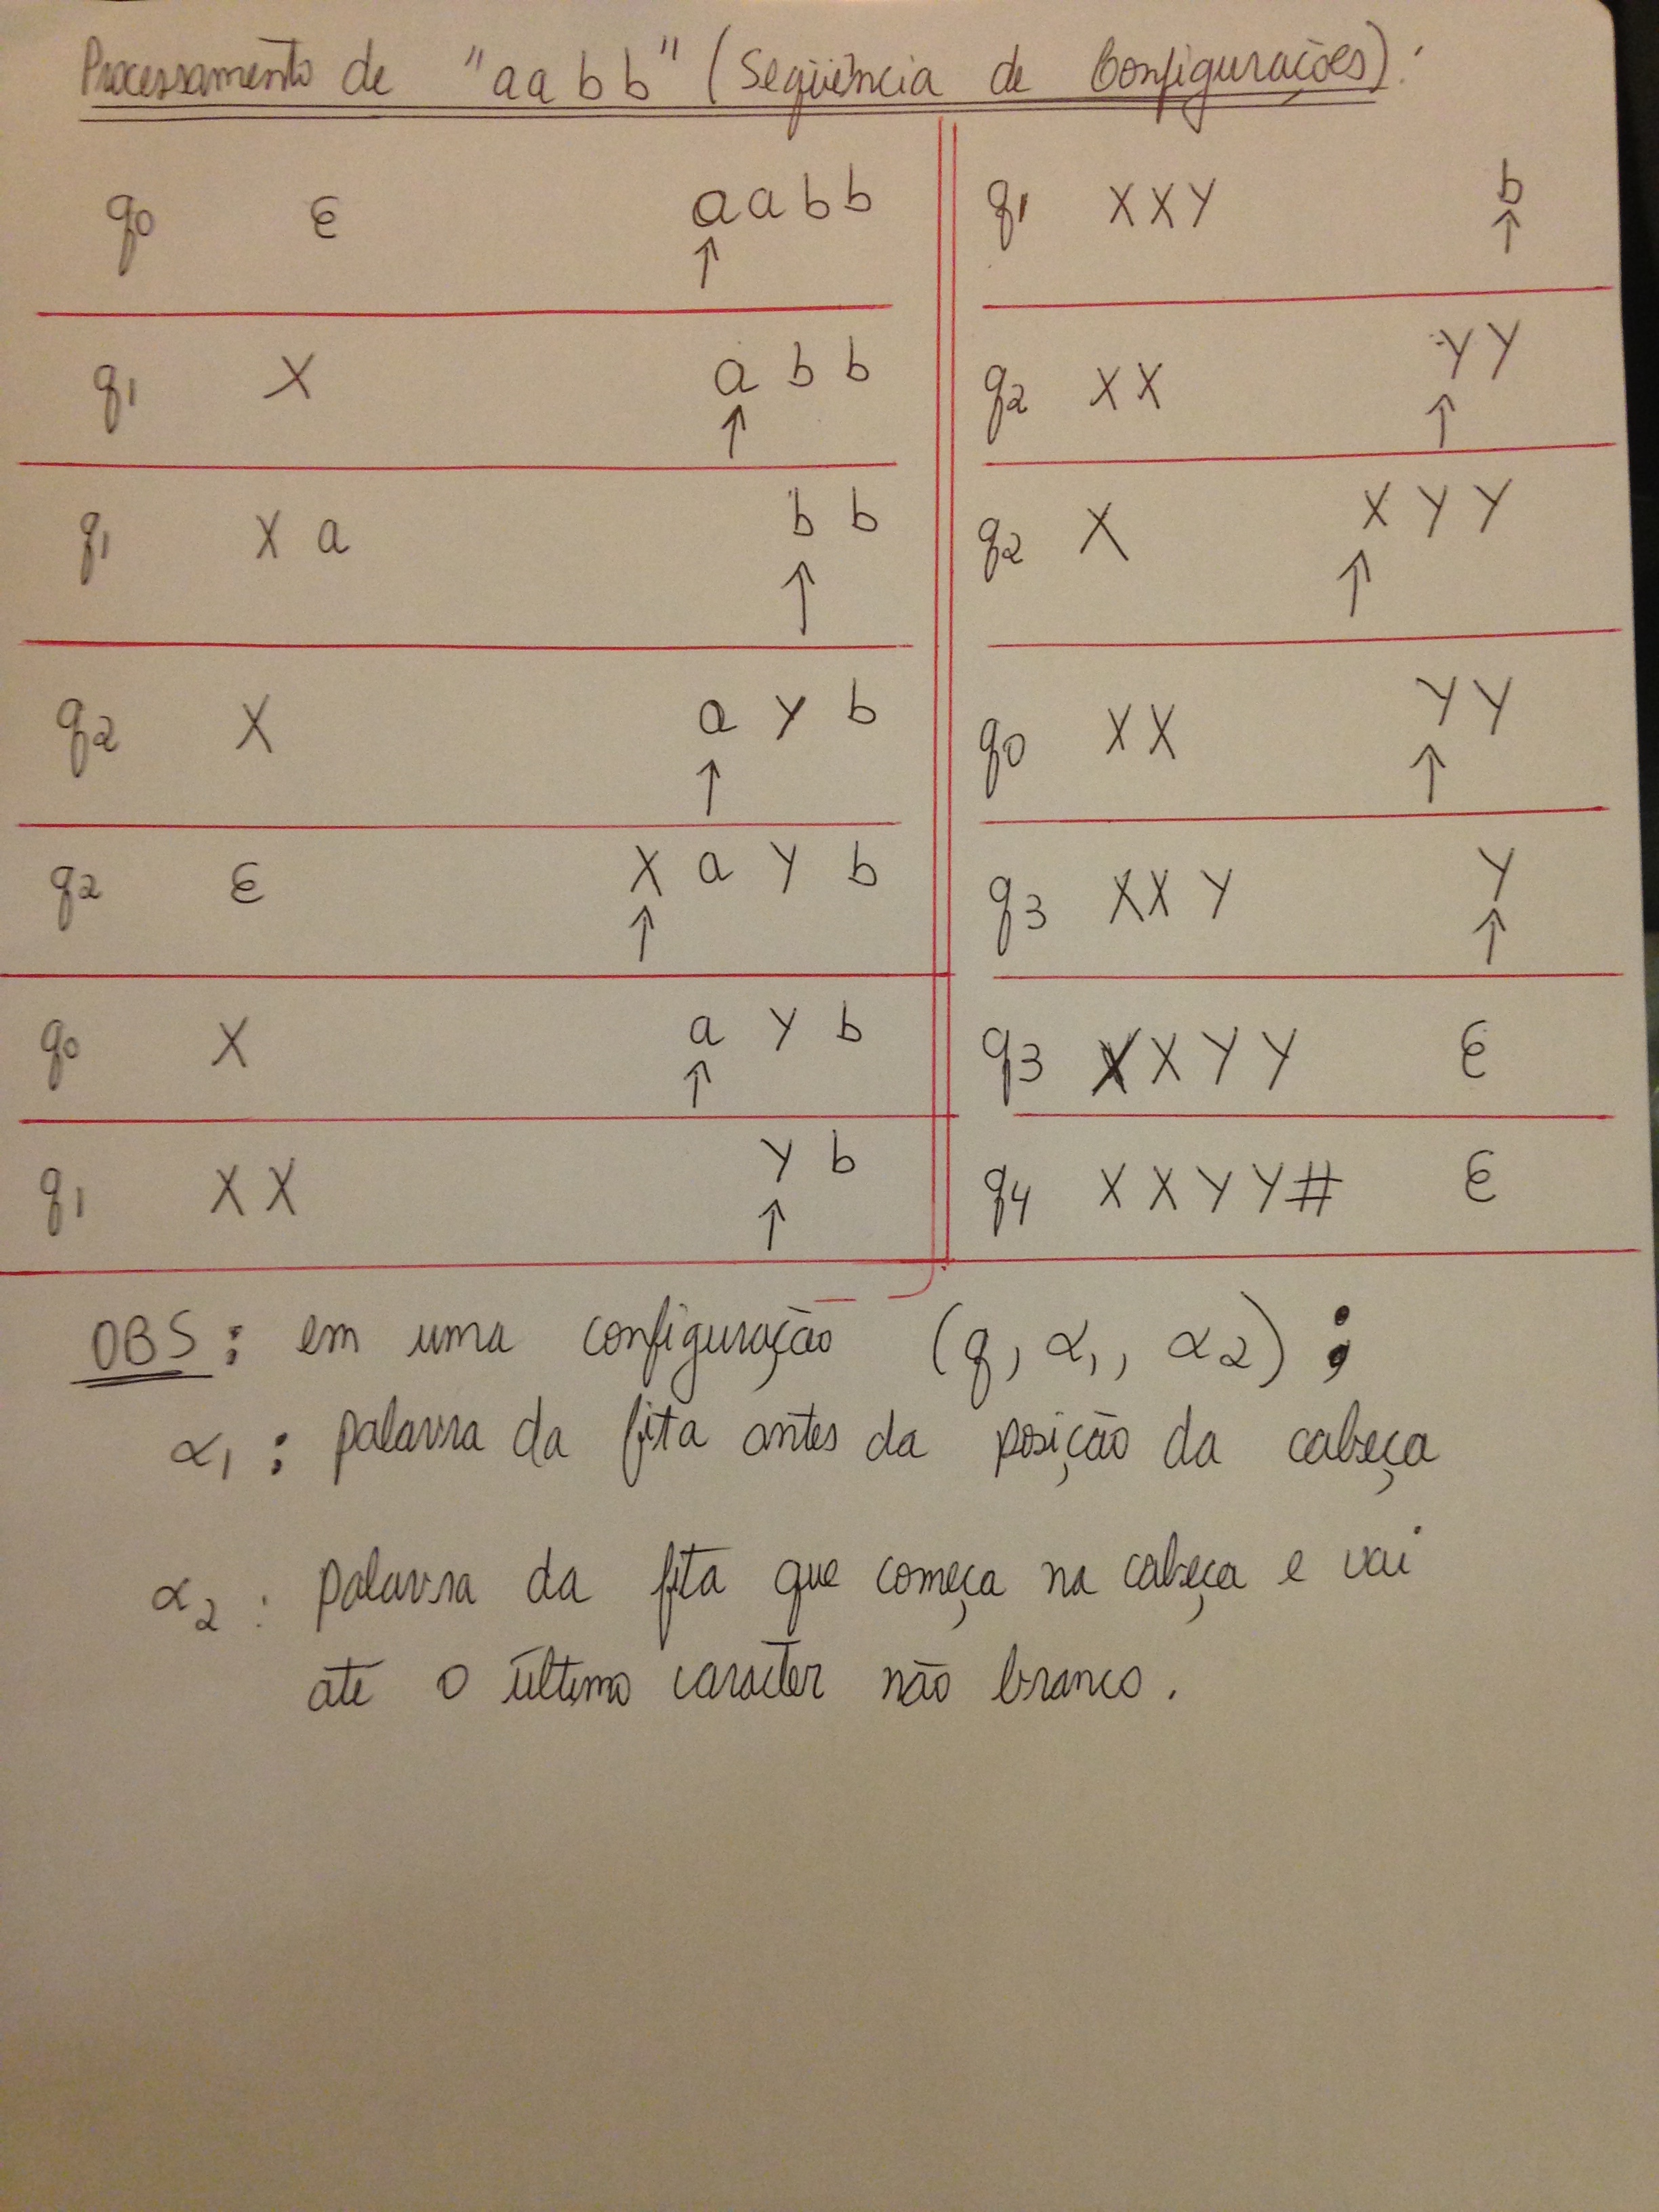 Processamento de "aabb" (Seqüência de Configurações):
q0 ε aabb
↑
q1 X abb
↑
q1 Xa bb
↑
q2 X ayb
↑
q2 ε Xayb
↑
q0 X ayb
↑
q1 XX yb
↑
q1 XXY b
↑
q2 XX YY
↑
q2 X XYY
↑
q0 XX YY
↑
q3 XXY Y
↑
q3 XXYY ε
q4 XXYY# ε
OBS: em uma configuração (q, α1, α2);
α1: palavra da fita antes da posição da cabeça
α2: palavra da fita que começa na cabeça e vai
até o último caracter não branco.